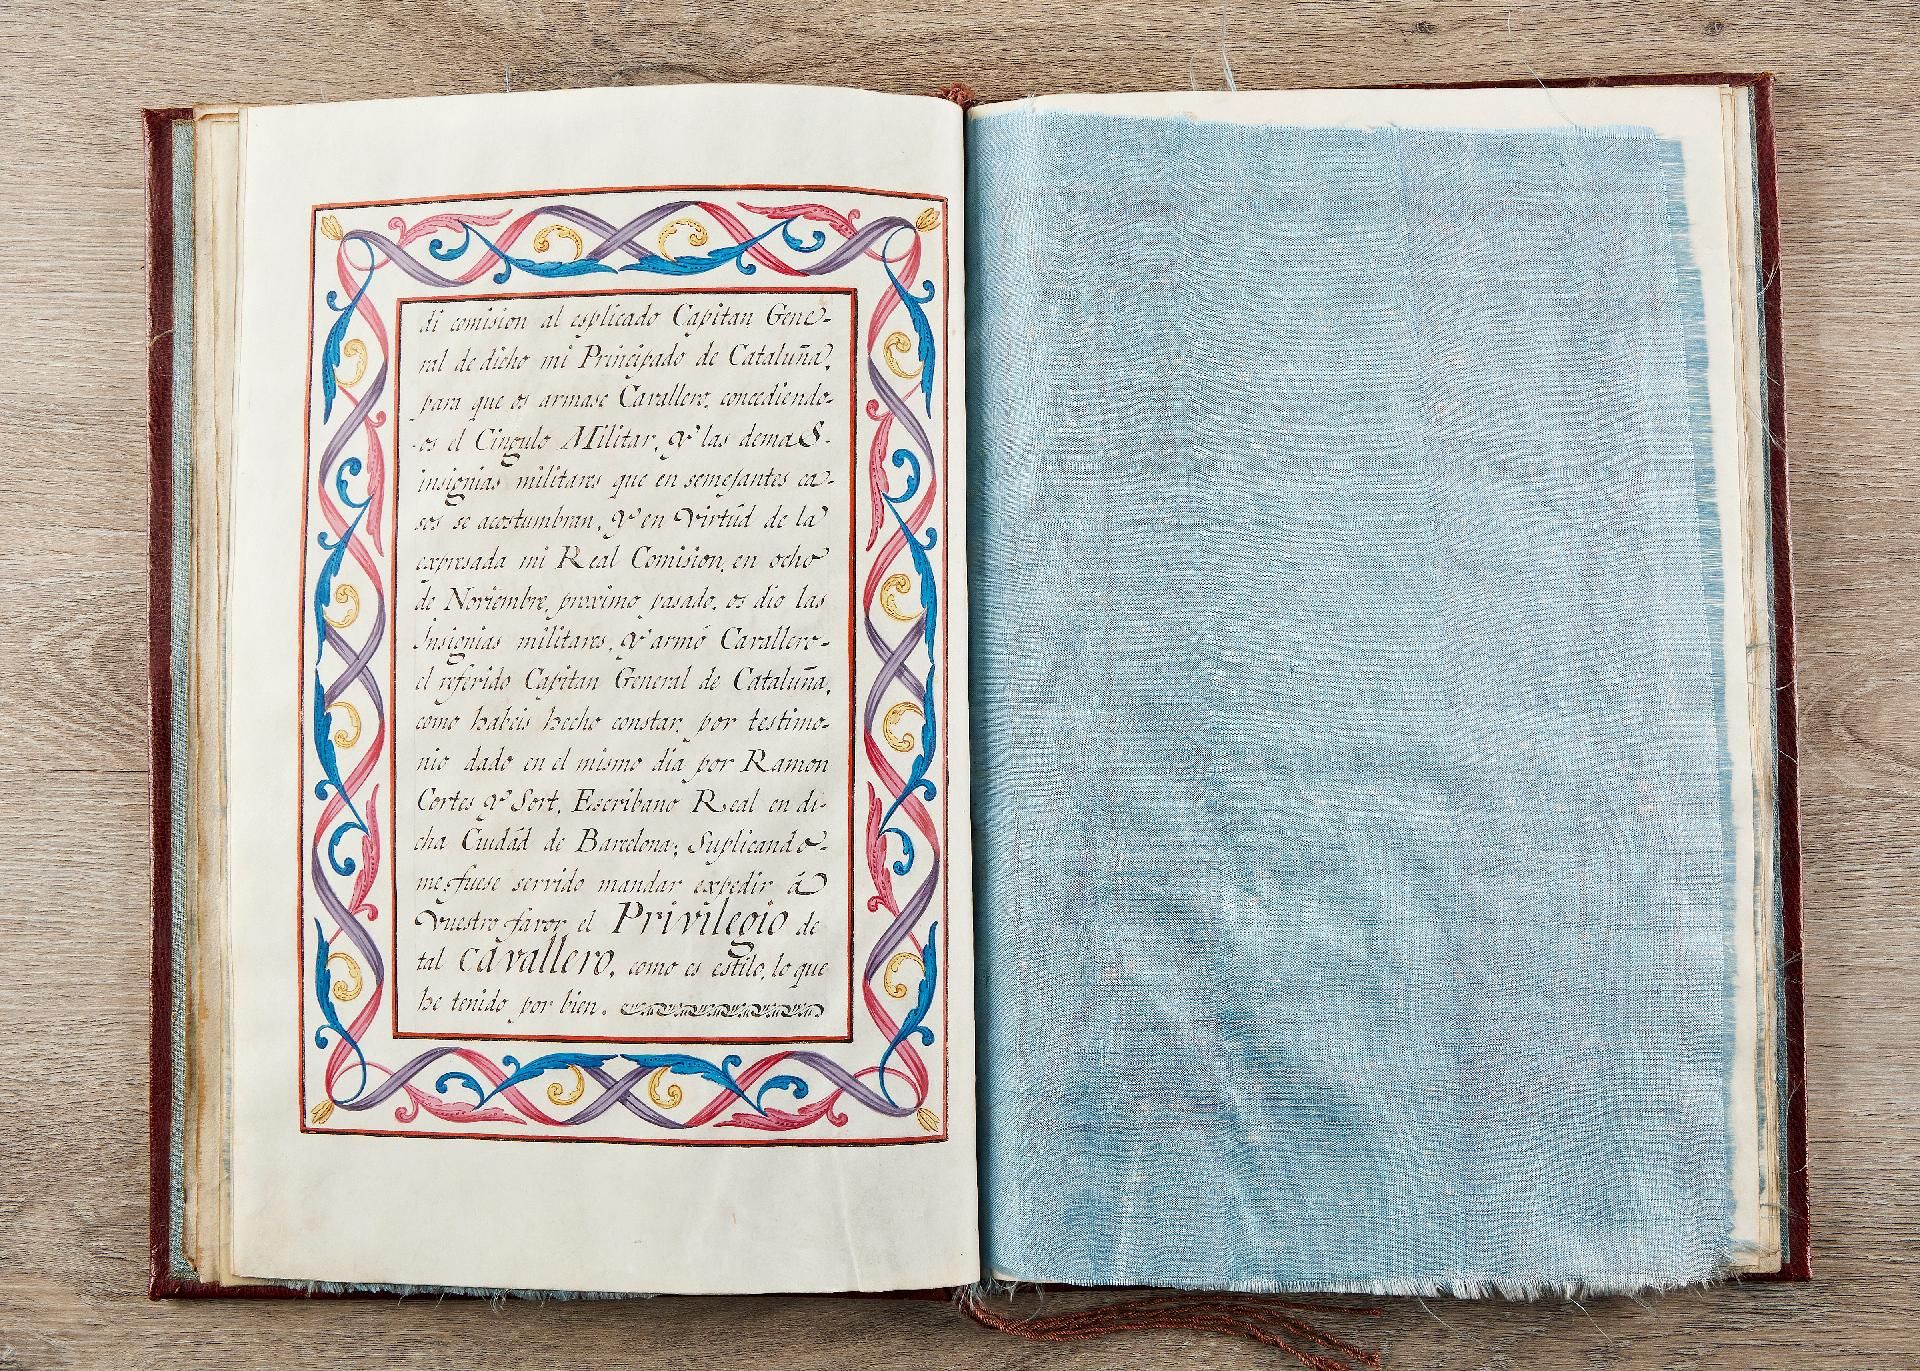 di comision al esplicado Capitan Gene-
ral de dicho mi Principado de Cataluña,
para que os armase Cavallero, concediendo-
-os el Cingulo Militar, Y las demas
insignias militares que en semejantes ca-
sos se acostumbran, Y en Virtúd de la
expresada mi Real Comision, en ocho
de Noviembre, proximo pasado, os dio las
Insignias militares, Y armó Cavallero-
el referido Capitan General de Cataluña,
como habeis hecho constar, por testimo-
nio dado en el mismo dia por Ramon
Cortes Y Sort, Escribano Real en di-
cha Ciudád de Barcelona; Suplicando-
me fuese servido mandar expedir á
Vuestro favor el Privilegio de
tal Cavallero, como es estilo, lo que
he tenido por bien.